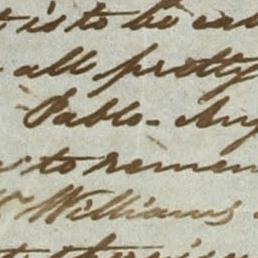 it is to be cal
all pretty
Pablo - Any
to remem
Williams